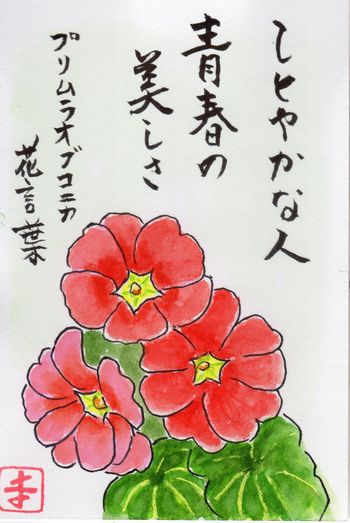 しとやかな人
青春の
美しさ
プリムラオブコニカ
花言葉